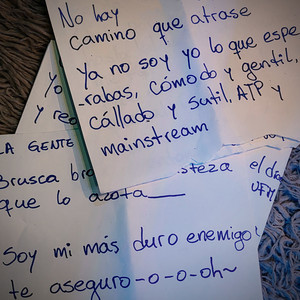 No hay
camino que atrase
Ya no soy yo lo que espe
-rabas, cómodo y gentil,
cállado y sutil, ATP y
mainstream
Yo
y rea
LA GENTE
Brusca br steza el dra
que lo azota
Soy mi más duro enemigo!
te aseguro-o-o-oh~